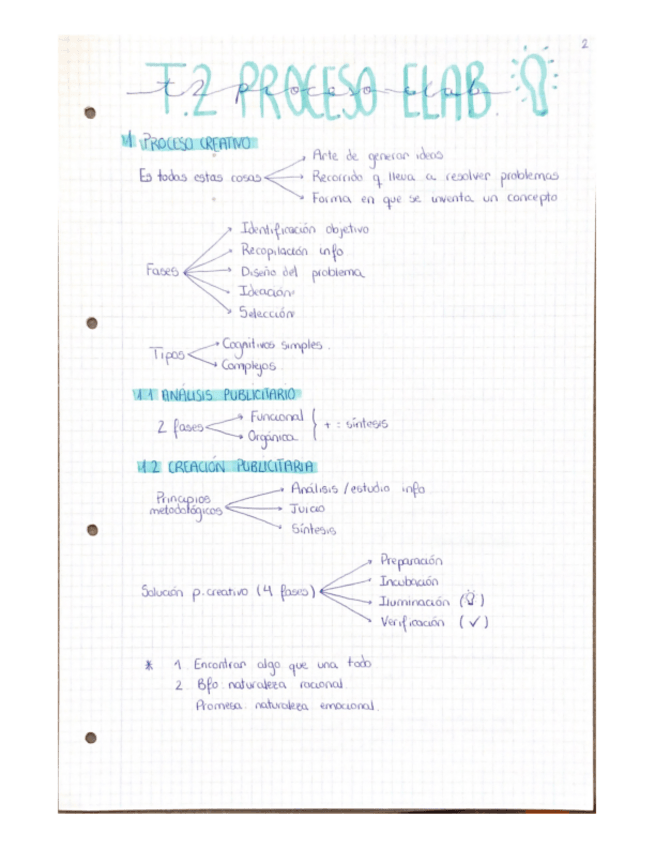 2
T.2 PROCESO ELAB.
t.2 proceso elab
1 PROCESO CREATIVO
Es todas estas cosas
Arte de generar ideas
Recorrido q lleva a resolver problemas
Forma en que se inventa un concepto
Fases
Identificación objetivo
Recopilación info
Diseño del problema
Ideación
Selección
Tipos
Cognitivos simples.
Complejos.
1.1 ANÁLISIS PUBLICITARIO
2 fases
Funcional
Orgánica
+ : síntesis
1.2 CREACIÓN PUBLICITARIA
Principios metodológicos
Análisis / estudio info
Juicio
Síntesis
Solución p. creativo (4 fases)
Preparación
Incubación
Iluminación ( )
Verificación (✓)
* 1. Encontrar algo que una todo
2. Bfo. naturaleza racional.
Promesa. naturaleza emocional.